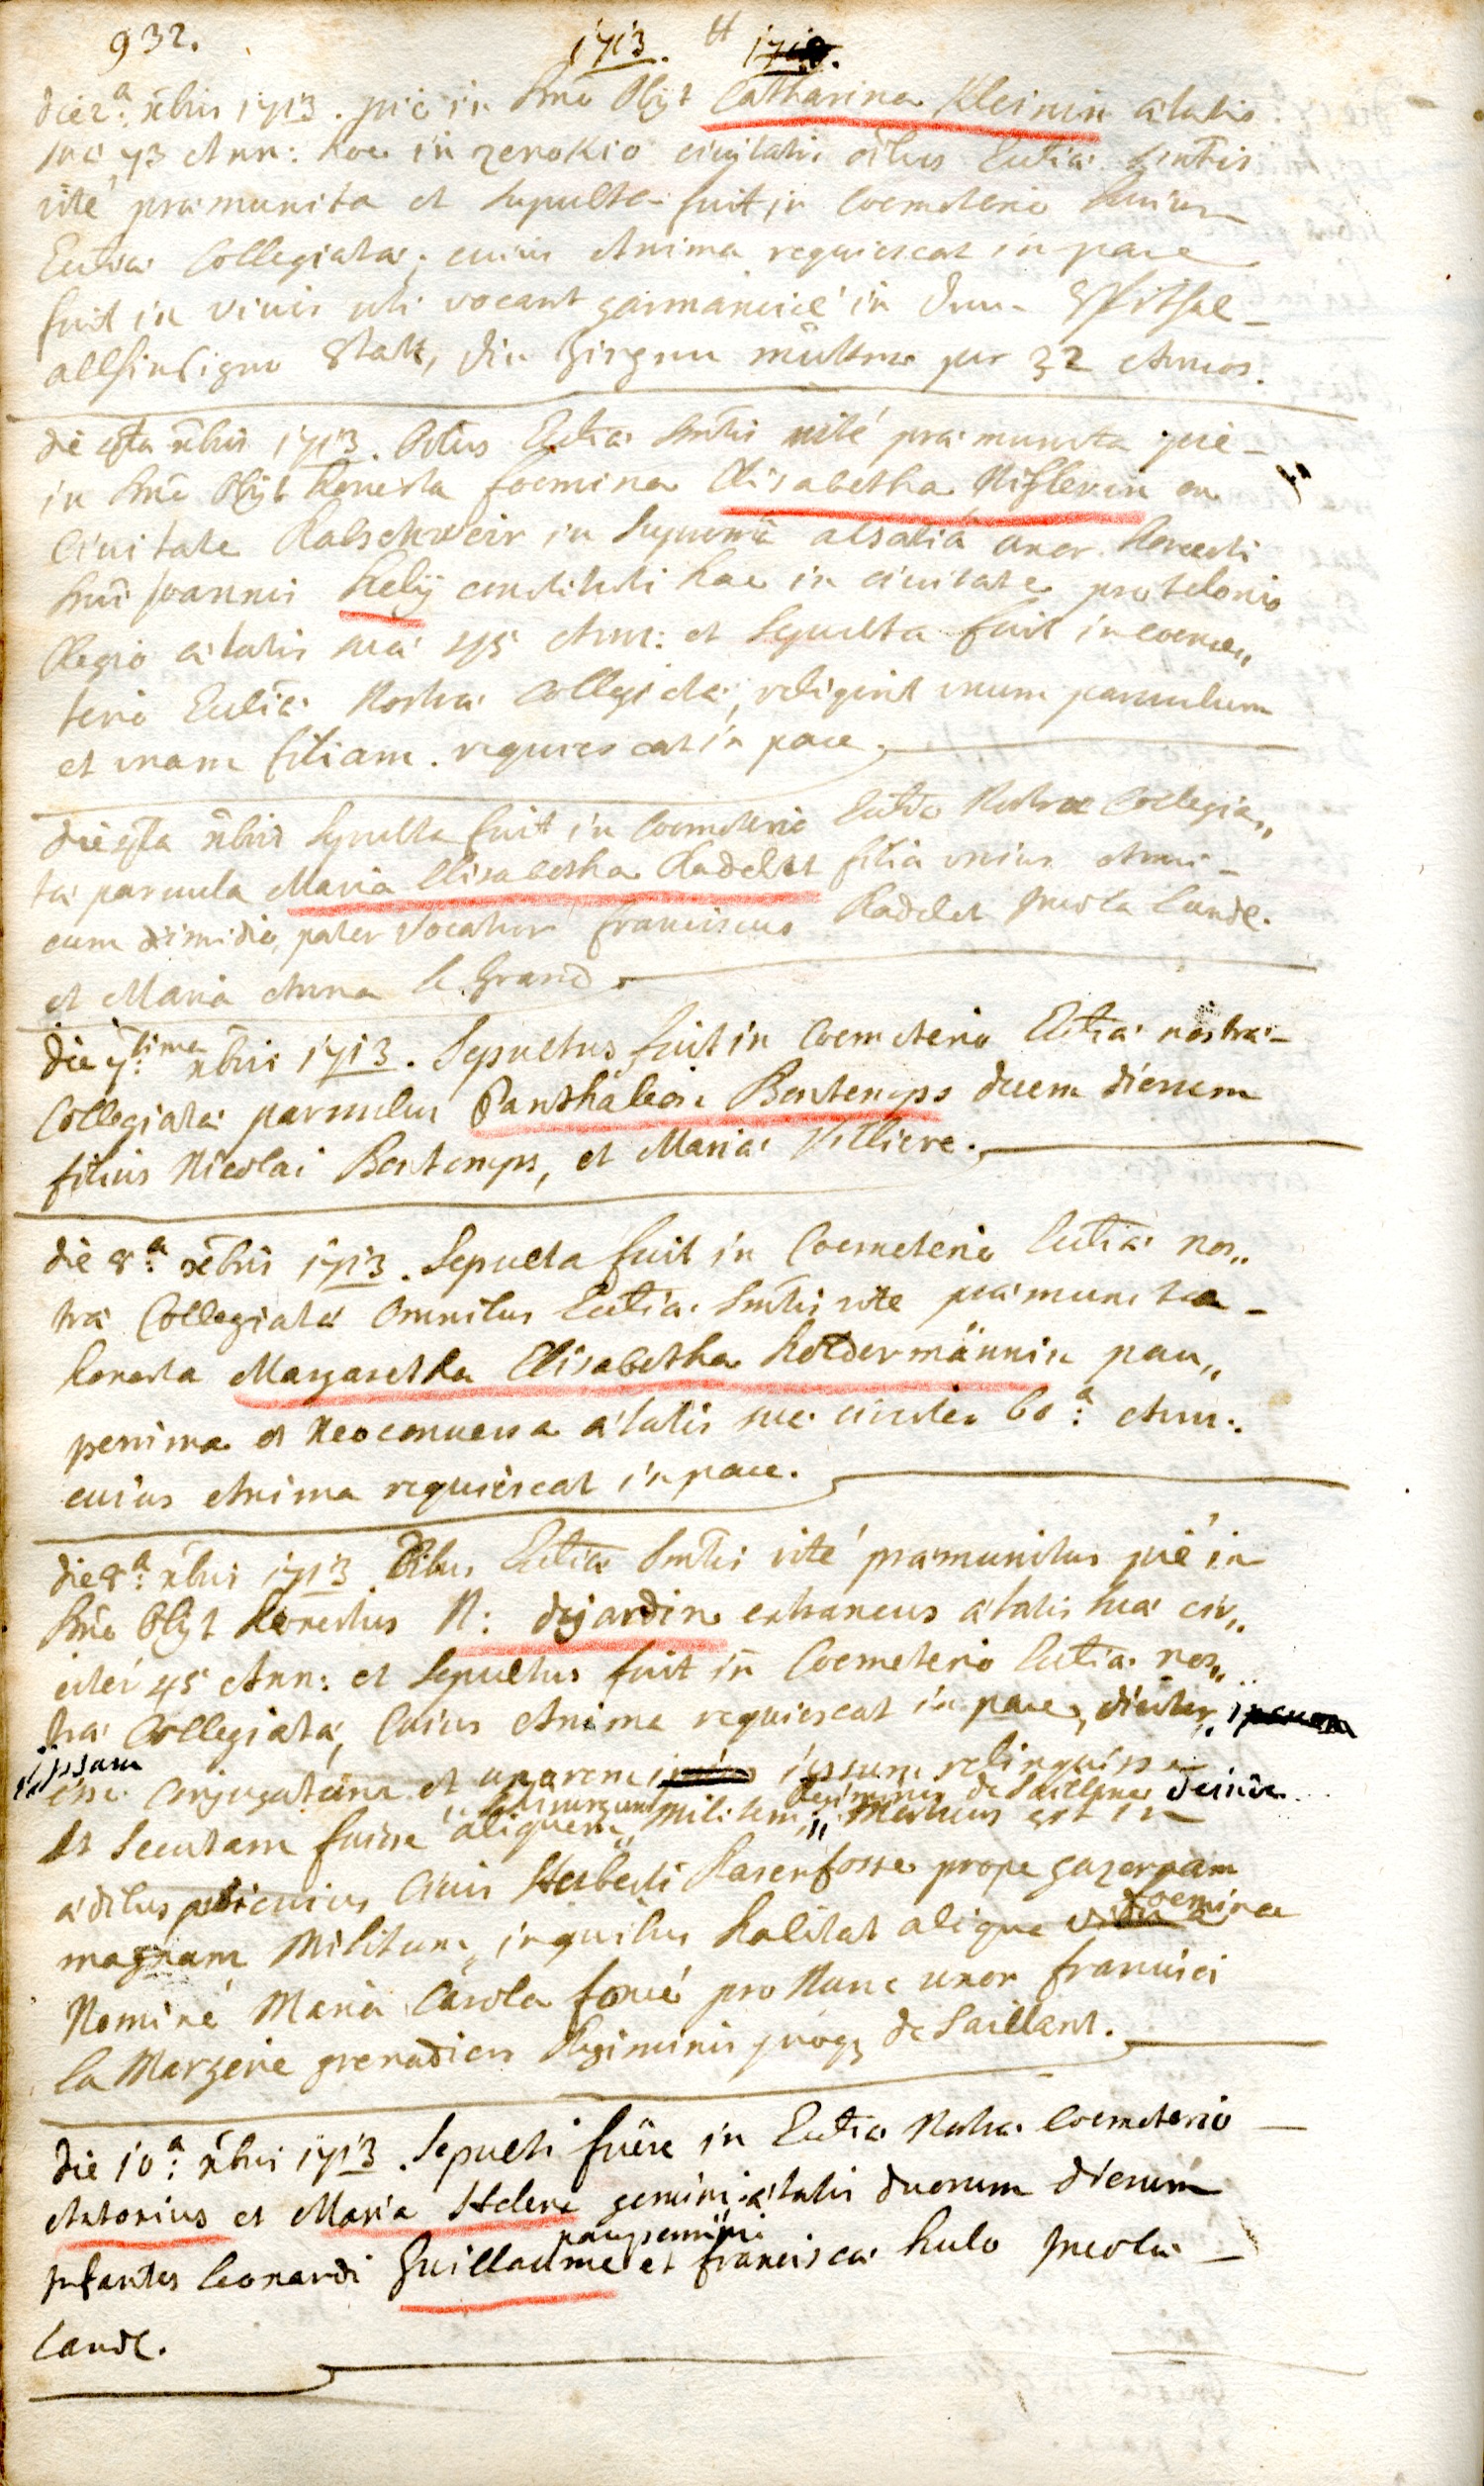 932.
1713. et
die 2.ª xbris 1713. piè in Dnõ Obijt Catharina Kleinin ætatis
suæ 73 Ann: hoc in xenokio civitatis oîbus Ecclîæ Sm̃tis
rité præmunita et sepulta fuit in Coemeterio huius
Ecclîæ Collegiatæ, cuius Anima requiescat in pace
fuit in vivis uti vocant germanicé in dem Spithal
allhiesigen Statt, die mutter per 32 Annos.
die 4ta xbris 1713. Oîbus Ecclîæ Sm̃tis rité præmunita piè
in Dnõ Obijt honesta foemina Elisabetha Nisslerin ex
Civitate Rabschweir in Superiori alsatiâ uxor Honesti
Dnî Joannis Kelij constituti hac in civitate pro telonio
Regio ætatis suæ 45 Ann: et Sepulta fuit in coeme„
terio Ecclîæ Nostræ Collegiatæ, reliquit unum parvulum
et unam filiam. requiescat in pace.
die 4ta xbris Sepulta fuit in Coemeterio Ecclîæ Nostræ Collegia„
tæ parvula Maria Elisabetha Radelet filia unius Anni
cum dimidio, pater vocatur franciscus Radelet Incola Land.
et Maria Anna le Grand.
die 7.tima xbris 1713. Sepultus fuit in Coemeterio Ecclîæ nostræ
Collegiatæ parvulus Panthaleon Bontemps decem dierum
filius Nicolai Bontemps, et Mariæ Villiere.
die 8.ª xbris 1713. Sepulta fuit in Coemeterio Ecclîæ nos„
træ Collegiatæ Omnibus Ecclîæ Sm̃tis rite præmunita
honesta Margaretha Elisabetha Holdermännin pau„
perrima et Neoconversa ætatis suæ circiter 60.ª Ann:
cuius Anima requiescat in pace.
die 8.ª xbris 1713 Oîbus Ecclîæ Sm̃tis rité præmunitus piè in
Dnõ Obijt Honestus N: dejardin extraneus ætatis suæ cir„
citer 45 Ann: et Sepultus fuit in Coemeterio Ecclîæ nos„
træ Collegiatæ, Cuius Anima requiescat in pace, dicitur
ipsam
esse Conjugatum et uxorem ipsum reliquisse
Regiminis de Saillans deinde
et Secutam fuisse aliquem militem, Mortuus est in
ædibus Civis Herberti Hasenfosse prope gazernam
foemina
magnam Militum, in quibus habitat aliqua
Nominé Maria Carola foné pro Nunc uxor francisci
la Marzerie grenadiers Regiminis quoq; de Saillant.
die 10.ª xbris 1713. Sepulti fuêre in Ecclîæ Nostræ Coemeterio
Antonius et Maria Helena gemini ætatis duorum dierum
pauperrimi
Infantes leonardi Guillaume et franciscæ hulo Incolæ
Land.